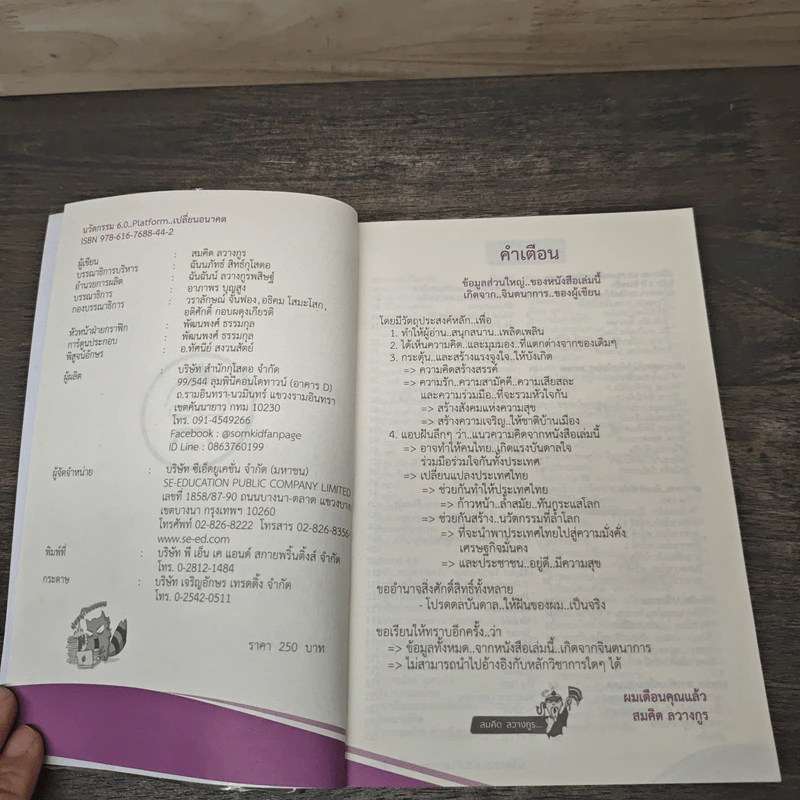 นวัตกรรม 6.0..Platform..เปลี่ยนอนาคต
ISBN 978-616-7688-44-2
ผู้เขียน : สมคิด ลวางกูร
บรรณาธิการบริหาร : ฉันนภัทธ์ สิทธ์กุโสดอ
อำนวยการผลิต : ฉันฉันน์ ลวางกูรพสิษฐ์
บรรณาธิการ : อาภาพร บุญสูง
กองบรรณาธิการ : วราลักษณ์ จันฟอง, อธิคม โสมะโสก,
อดิศักดิ์ กอบผดุงเกียรติ
หัวหน้าฝ่ายกราฟิก : พัฒนพงศ์ ธรรมกุล
การ์ตูนประกอบ : พัฒนพงศ์ ธรรมกุล
พิสูจน์อักษร : อ.ทัศนีย์ สงวนสัตย์
ผู้ผลิต : บริษัท สำนักกุโสดอ จำกัด
99/544 ลุมพินีคอนโดทาวน์ (อาคาร D)
ถ.รามอินทรา-นวมินทร์ แขวงรามอินทรา
เขตคันนายาว กทม 10230
โทร. 091-4549266
Facebook : @somkidfanpage
ID Line : 0863760199
ผู้จัดจำหน่าย : บริษัท ซีเอ็ดยูเคชั่น จำกัด (มหาชน)
SE-EDUCATION PUBLIC COMPANY LIMITED
เลขที่ 1858/87-90 ถนนบางนา-ตลาด แขวงบางนา
เขตบางนา กรุงเทพฯ 10260
โทรศัพท์ 02-826-8222 โทรสาร 02-826-8356
www.se-ed.com
พิมพ์ที่ : บริษัท พี เอ็น เค แอนด์ สกายพริ้นติ้งส์ จำกัด
โทร. 0-2812-1484
กระดาษ : บริษัท เจริญอักษร เทรดดิ้ง จำกัด
โทร. 0-2542-0511
ราคา 250 บาท
คำเตือน
ข้อมูลส่วนใหญ่..ของหนังสือเล่มนี้
เกิดจาก..จินตนาการ..ของผู้เขียน
โดยมีวัตถุประสงค์หลัก..เพื่อ
1. ทำให้ผู้อ่าน..สนุกสนาน..เพลิดเพลิน
2. ได้เห็นความคิด..และมุมมอง..ที่แตกต่างจากของเดิมๆ
3. กระตุ้น..และสร้างแรงจูงใจ..ให้บังเกิด
=> ความคิดสร้างสรรค์
=> ความรัก..ความสามัคคี..ความเสียสละ
และความร่วมมือ..ที่จะรวมหัวใจกัน
=> สร้างสังคมแห่งความสุข
=> สร้างความเจริญ..ให้ชาติบ้านเมือง
4. แอบฝันลึกๆ ว่า..แนวความคิดจากหนังสือเล่มนี้
=> อาจทำให้คนไทย..เกิดแรงบันดาลใจ
ร่วมมือร่วมใจกันทั้งประเทศ
=> เปลี่ยนแปลงประเทศไทย
=> ช่วยกันทำให้ประเทศไทย
=> ก้าวหน้า..ล้ำสมัย..ทันกระแสโลก
=> ช่วยกันสร้าง..นวัตกรรมที่ล้ำโลก
=> ที่จะนำพาประเทศไทยไปสู่ความมั่งคั่ง
เศรษฐกิจมั่นคง
=> และประชาชน..อยู่ดี..มีความสุข
ขออำนาจสิ่งศักดิ์สิทธิ์ทั้งหลาย
- โปรดดลบันดาล..ให้ฝันของผม..เป็นจริง
ขอเรียนให้ทราบอีกครั้ง..ว่า
=> ข้อมูลทั้งหมด..จากหนังสือเล่มนี้..เกิดจากจินตนาการ
=> ไม่สามารถนำไปอ้างอิงกับหลักวิชาการใดๆ ได้
ผมเตือนคุณแล้ว
สมคิด ลวางกูร
สมคิด ลวางกูร...